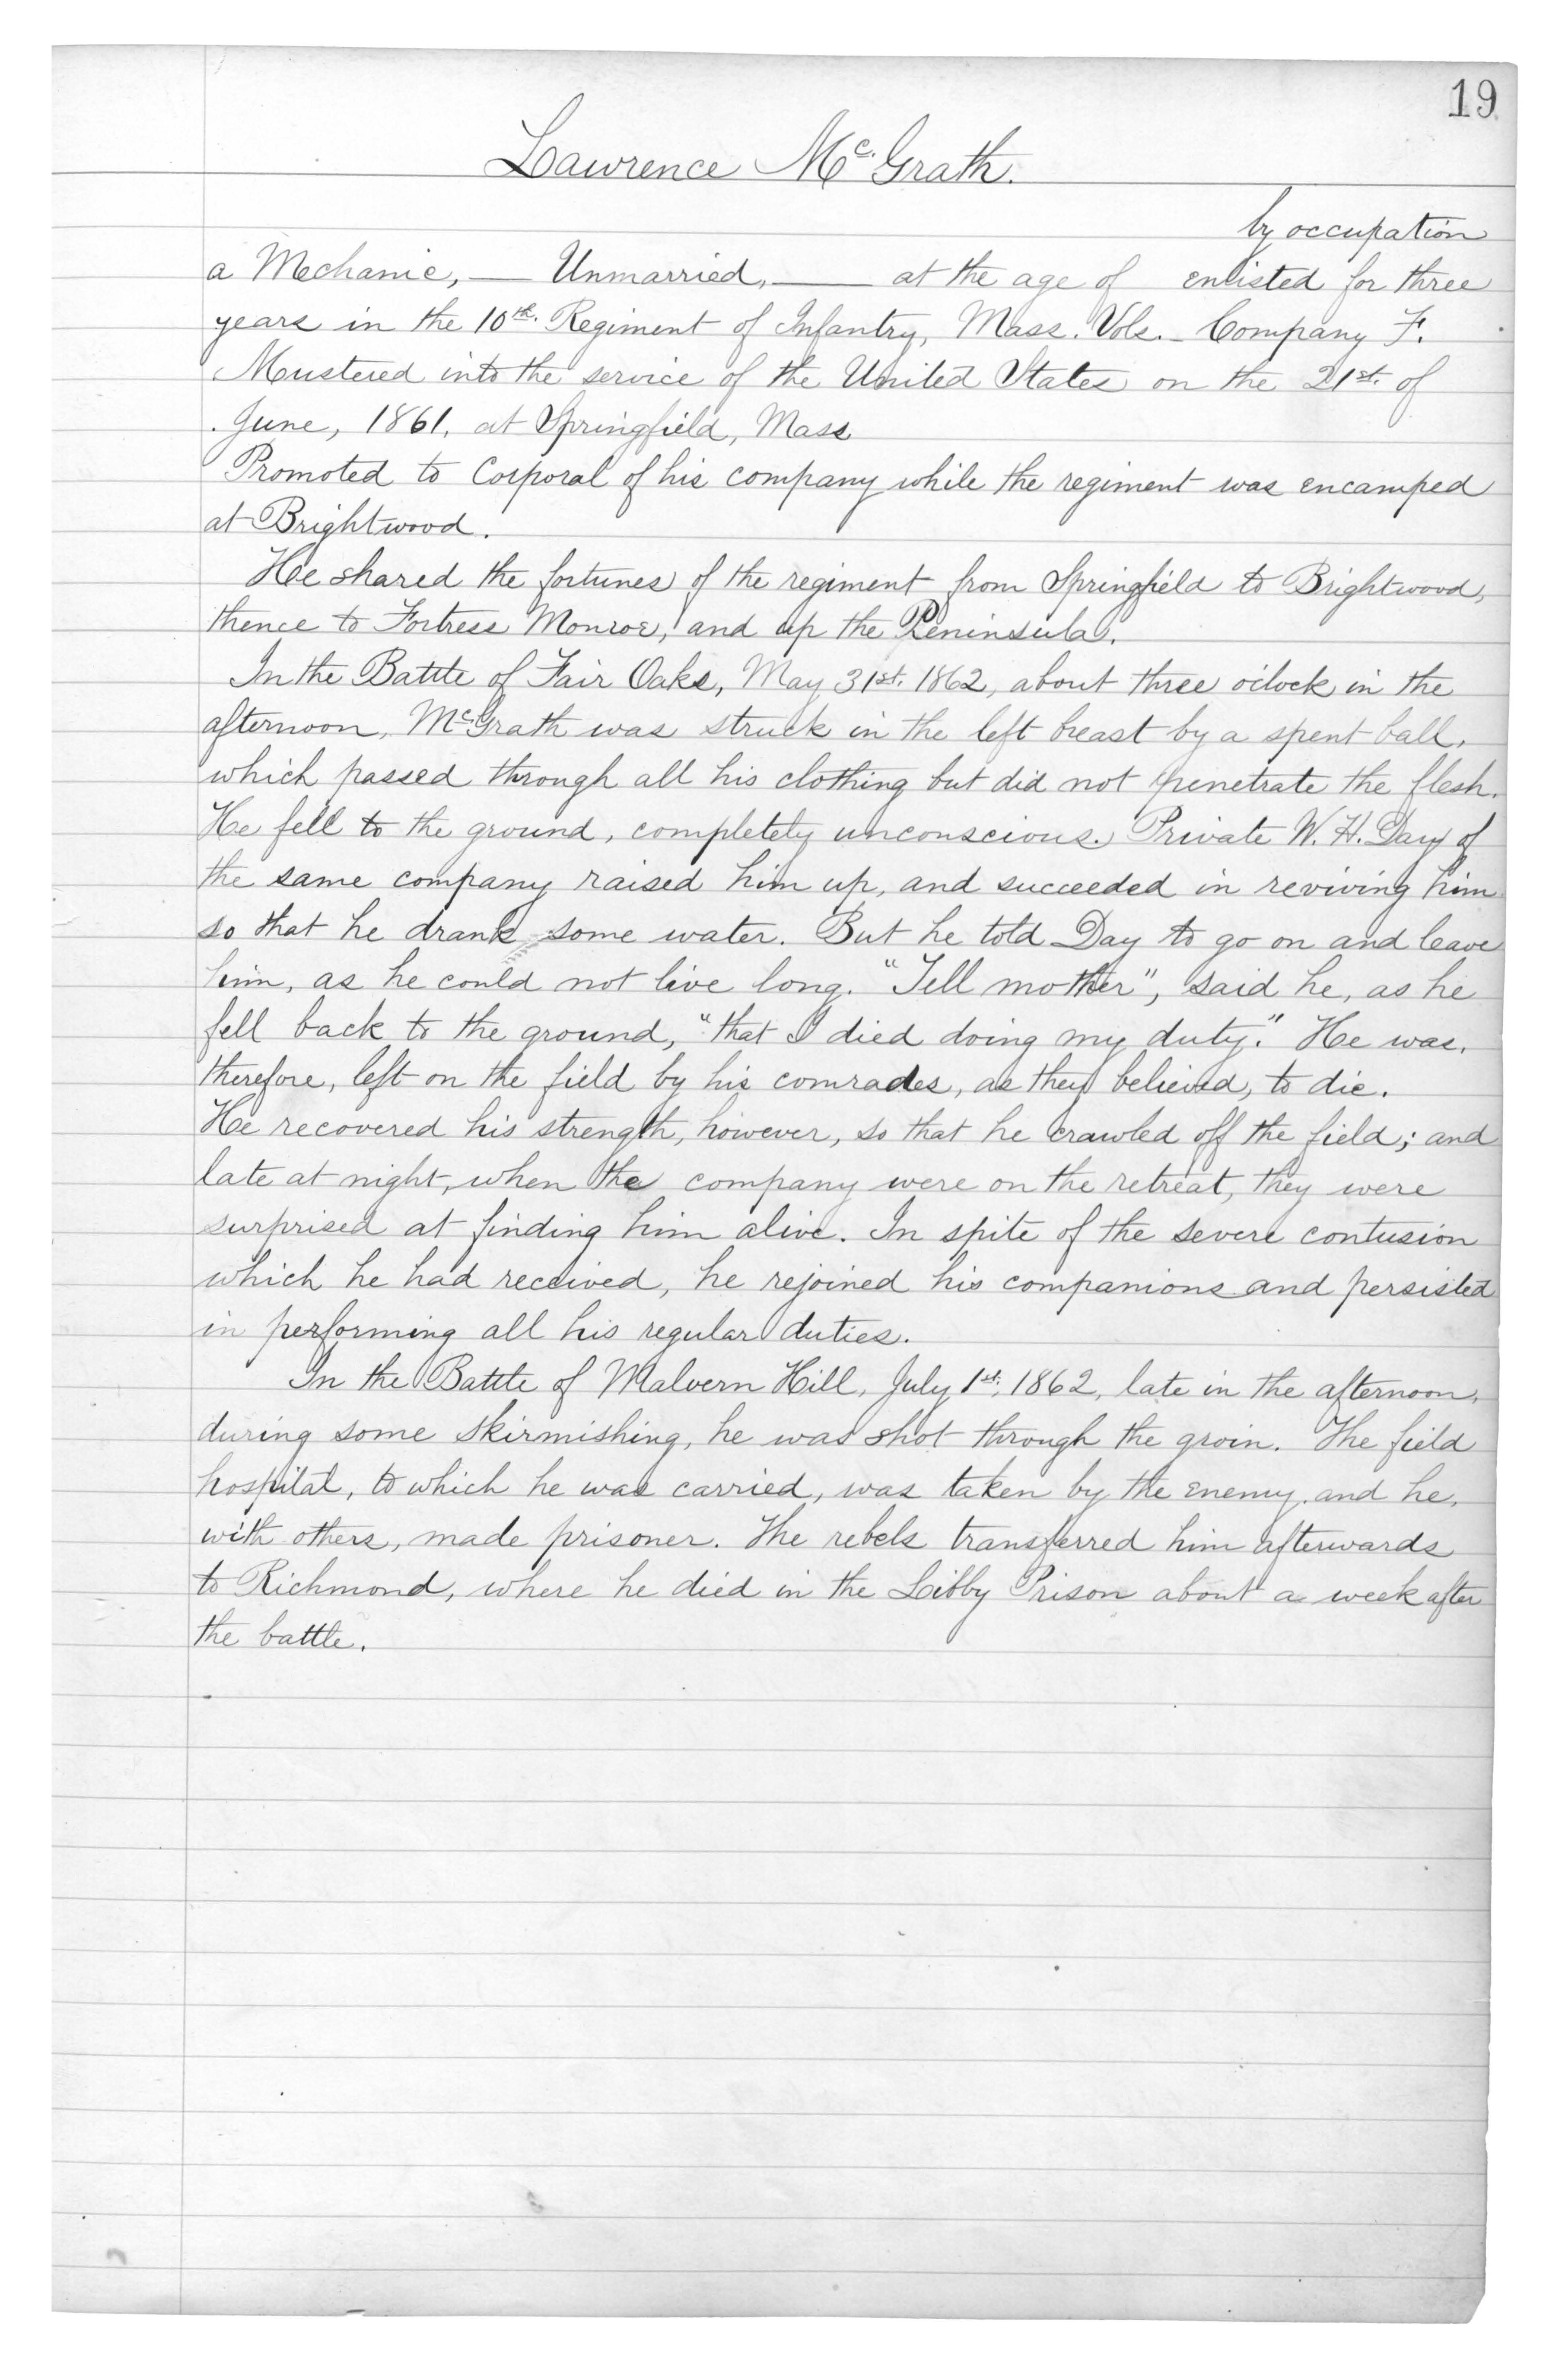 19
Lawrence McGrath.
by occupation
a Mechanic, — Unmarried, — at the age of enlisted for three
years in the 10th. Regiment of Infantry, Mass. Vols. - Company F.
Mustered into the service of the United States on the 21st. of
June, 1861, at Springfield, Mass
Promoted to Corporal of his company while the regiment was encamped
at Brightwood.
He shared the fortunes of the regiment from Springfield to Brightwood,
thence to Fortress Monroe, and up the Peninsula.
In the Battle of Fair Oaks, May 31st. 1862, about three o'clock in the
afternoon, McGrath was struck in the left breast by a spent ball,
which passed through all his clothing but did not penetrate the flesh.
He fell to the ground, completely unconscious. Private W. H. Day of
the same company raised him up, and succeeded in reviving him
so that he drank some water. But he told Day to go on and leave
him, as he could not live long. "Tell mother", said he, as he
fell back to the ground, "that I died doing my duty." He was,
therefore, left on the field by his comrades, as they believed, to die.
He recovered his strength, however, so that he crawled off the field; and
late at night, when the company were on the retreat, they were
surprised at finding him alive. In spite of the severe contusion
which he had received, he rejoined his companions and persisted
in performing all his regular duties.
In the Battle of Malvern Hill, July 1st. 1862, late in the afternoon,
during some skirmishing, he was shot through the groin. The field
hospital, to which he was carried, was taken by the enemy, and he,
with others, made prisoner. The rebels transferred him afterwards
to Richmond, where he died in the Libby Prison about a week after
the battle.